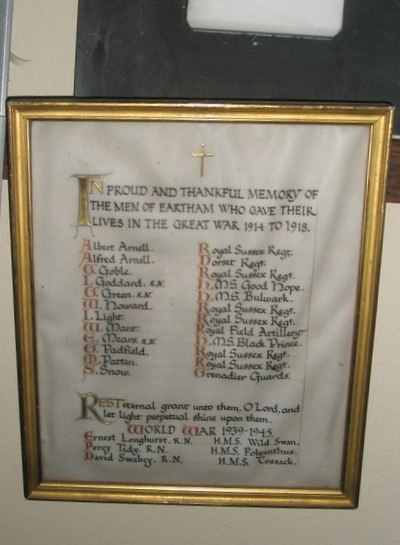 IN PROUD AND THANKFUL MEMORY OF
THE MEN OF EARTHAM WHO GAVE THEIR
LIVES IN THE GREAT WAR 1914 TO 1918.
Albert Arnell. Royal Sussex Regt.
Alfred Arnell. Dorset Regt.
G. Goble. Royal Sussex Regt.
L. Goddard. R.N. H.M.S. Good Hope.
G. Green. R.N. H.M.S. Bulwark.
W. Howard. Royal Sussex Regt.
L. Light. Royal Sussex Regt.
W. Mant. Royal Field Artillery
E. Mears. R.N. H.M.S. Black Prince.
Padfield. Royal Sussex Regt.
Patten. Royal Sussex Regt.
S. Snow. Grenadier Guards.
REST eternal grant unto them, O Lord, and
let light perpetual shine upon them.
WORLD WAR 1939-1945.
Ernest Longhurst. R.N. H.M.S. Wild Swan.
Percy Tidy. R.N. H.M.S. Polyanthus.
David Swabey. R.N. H.M.S. Cossack.